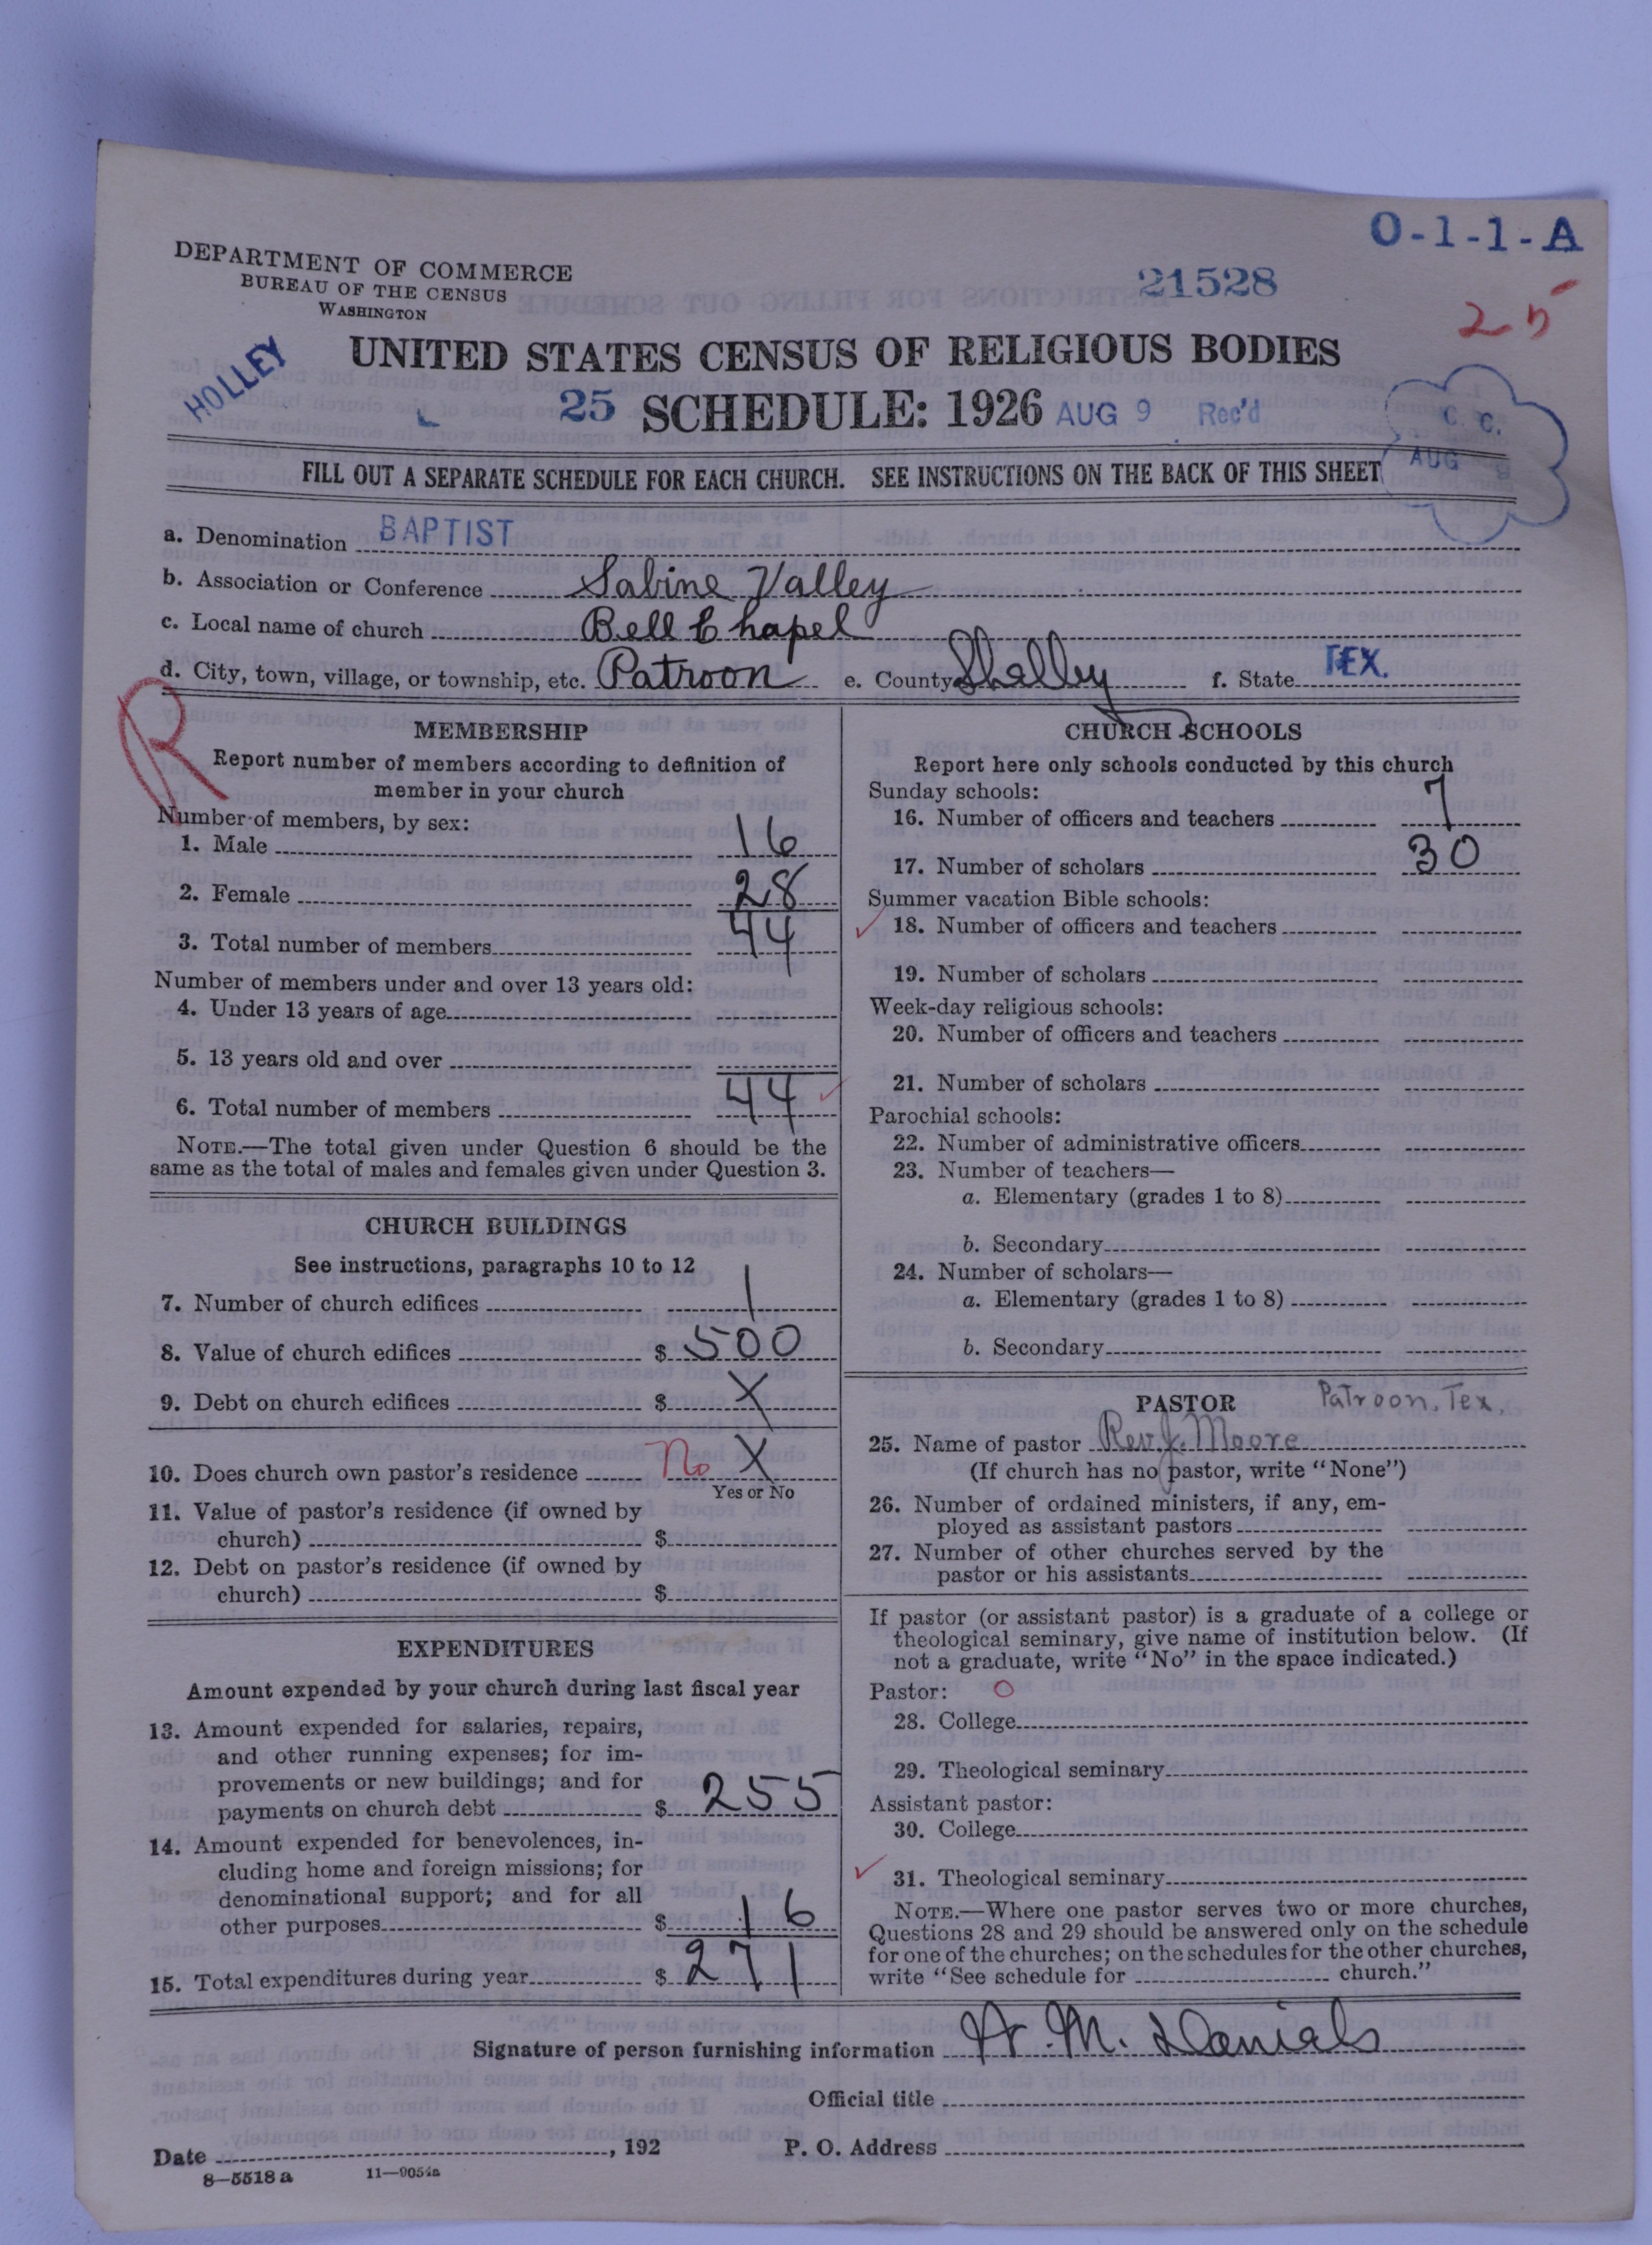 O-1-1-A
DEPARTMENT OF COMMERCE
BUREAU OF THE CENSUS
WASHINGTON
21528
25
HOLLEY
UNITED STATES CENSUS OF RELIGIOUS BODIES
25 SCHEDULE: 1926 AUG 9 Rec'd
C. C.
AUG
FILL OUT A SEPARATE SCHEDULE FOR EACH CHURCH. SEE INSTRUCTIONS ON THE BACK OF THIS SHEET
a. Denomination BAPTIST
b. Association or Conference Sabine Valley
c. Local name of church Bell Chapel
d. City, town, village, or township, etc. Patroon e. County Shelby f. State TEX.
R
MEMBERSHIP
Report number of members according to definition of
member in your church
Number of members, by sex:
1. Male 16
2. Female 28
3. Total number of members 44
Number of members under and over 13 years old:
4. Under 13 years of age
5. 13 years old and over
6. Total number of members 44
NOTE.—The total given under Question 6 should be the
same as the total of males and females given under Question 3.
CHURCH BUILDINGS
See instructions, paragraphs 10 to 12
7. Number of church edifices 1
8. Value of church edifices $ 500
9. Debt on church edifices $ X
10. Does church own pastor's residence no X
Yes or No
11. Value of pastor's residence (if owned by
church) $
12. Debt on pastor's residence (if owned by
church) $
EXPENDITURES
Amount expended by your church during last fiscal year
13. Amount expended for salaries, repairs,
and other running expenses; for im-
provements or new buildings; and for
payments on church debt $ 255
14. Amount expended for benevolences, in-
cluding home and foreign missions; for
denominational support; and for all
other purposes $ 16
15. Total expenditures during year $ 271
CHURCH SCHOOLS
Report here only schools conducted by this church
Sunday schools:
16. Number of officers and teachers 7
17. Number of scholars 30
Summer vacation Bible schools:
18. Number of officers and teachers
19. Number of scholars
Week-day religious schools:
20. Number of officers and teachers
21. Number of scholars
Parochial schools:
22. Number of administrative officers
23. Number of teachers—
a. Elementary (grades 1 to 8)
b. Secondary
24. Number of scholars—
a. Elementary (grades 1 to 8)
b. Secondary
PASTOR Patroon, Tex.
25. Name of pastor Rev. J. Moore
(If church has no pastor, write "None")
26. Number of ordained ministers, if any, em-
ployed as assistant pastors
27. Number of other churches served by the
pastor or his assistants
If pastor (or assistant pastor) is a graduate of a college or
theological seminary, give name of institution below. (If
not a graduate, write "No" in the space indicated.)
Pastor: O
28. College
29. Theological seminary
Assistant pastor:
30. College
31. Theological seminary
NOTE.—Where one pastor serves two or more churches,
Questions 28 and 29 should be answered only on the schedule
for one of the churches; on the schedules for the other churches,
write "See schedule for church."
Signature of person furnishing information M. Daniels
Official title
Date , 192 P. O. Address
8—5518 a 11—9054a